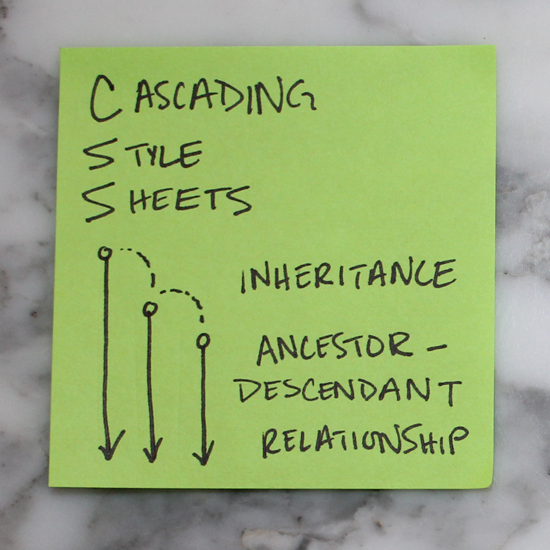 CASCADING
STYLE
SHEETS
INHERITANCE
ANCESTOR -
DESCENDANT
RELATIONSHIP